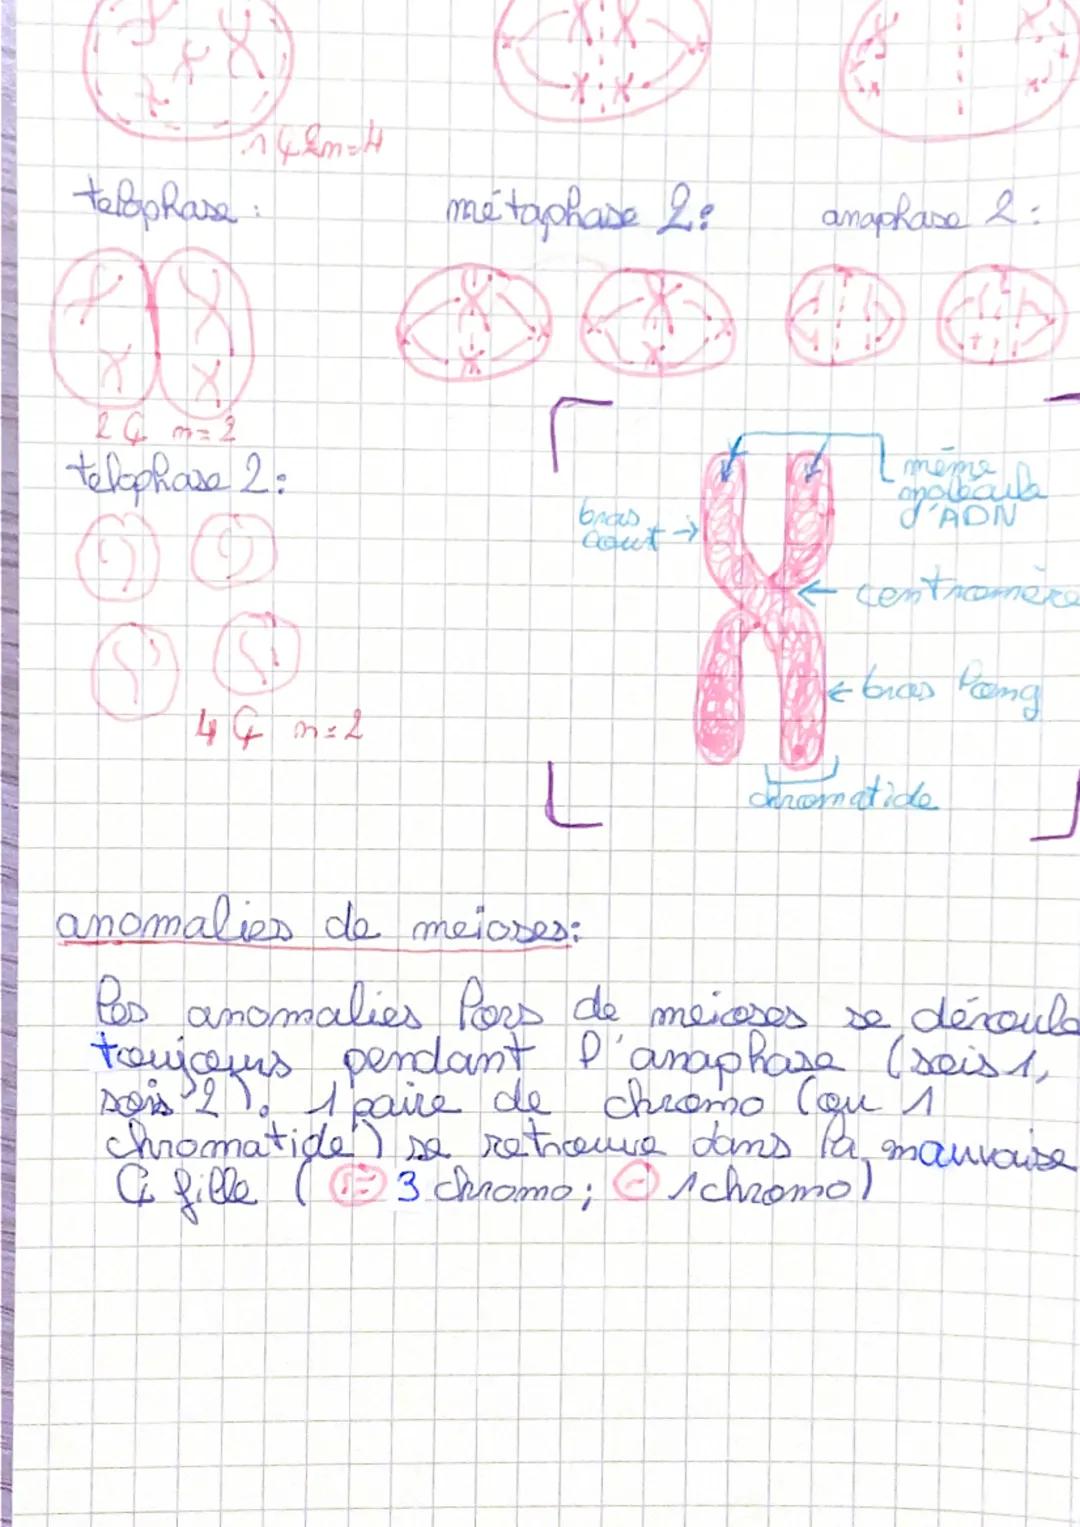 1 C 2n=4
telophase :
métaphase 2:
anaphase 2:
2 C n=2
telophase 2:
4 C n=2
même
molécule
d'ADN
bras
court
centromère
bras long
chromatide
anomalies de meioses:
les anomalies lors de meioses se déroule
toujours pendant l'anaphase (sois 1,
sois 2). 1 paire de chromo (ou 1
chromatide) se retrouve dans la mauvaise
C fille ( 3 chromo; 1 chromo)